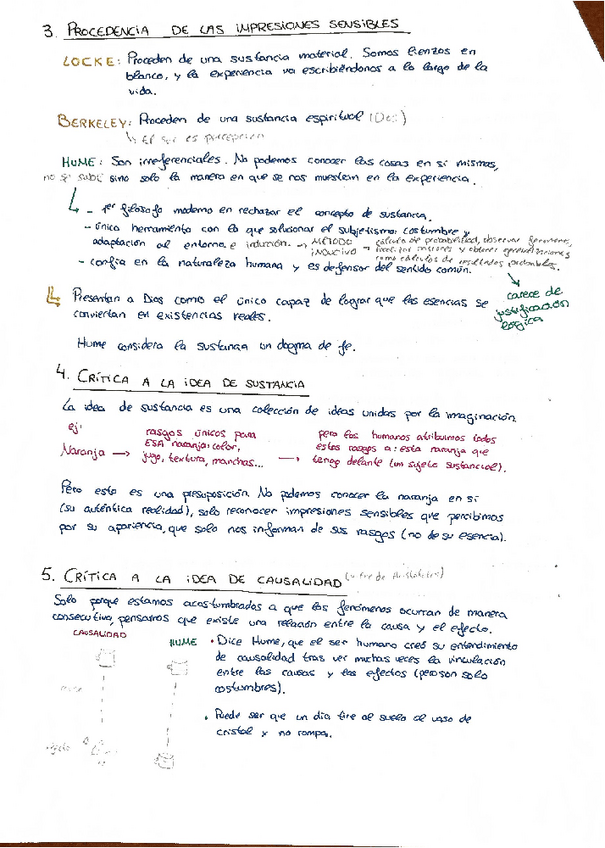 3. PROCEDENCIA DE LAS IMPRESIONES SENSIBLES
LOCKE: Proceden de una sustancia material. Somos lienzos en
blanco, y la experiencia va escribiéndonos a lo largo de la
vida.
BERKELEY: Proceden de una sustancia espiritual (Dios)
↳ El ser es percepción
HUME: Son irreferenciales. No podemos conocer las cosas en sí mismas,
no se sabe sino solo la manera en que se nos muestran en la experiencia.
- 1er filósofo moderno en rechazar el concepto de sustancia.
- única herramienta con la que solucionar el subjetismo: costumbre y
adaptación al entorno e inducción. → MÉTODO INDUCTIVO → cálculo de probabilidad, observar fenómenos,
y obtener generalizaciones
como cálculos de resultados probables.
- confía en la naturaleza humana y es defensor del sentido común.
carece de
justificación
lógica
Presentan a Dios como el único capaz de lograr que las esencias se
conviertan en existencias reales.
Hume considera la sustancia un dogma de fe.
4. CRÍTICA A LA IDEA DE SUSTANCIA
La idea de sustancia es una colección de ideas unidas por la imaginación.
ej:
Naranja →
rasgos únicos para
ESA naranja: color,
jugo, textura, manchas... →
pero los humanos atribuimos todos
estos rasgos a: esta naranja que
tengo delante (un sujeto sustancial).
Pero esto es una presuposición. No podemos conocer la naranja en sí
(su auténtica realidad), solo reconocer impresiones sensibles que percibimos
por su apariencia, que solo nos informan de sus rasgos (no de su esencia).
5. CRÍTICA A LA IDEA DE CAUSALIDAD
Solo porque estamos acostumbrados a que los fenómenos ocurran de manera
consecutiva, pensamos que existe una relación entre la causa y el efecto.
CAUSALIDAD
HUME
• Dice Hume, que el ser humano creó su entendimiento
de causalidad tras ver muchas veces la vinculación
entre las causas y los efectos (pero son solo
costumbres).
• Puede ser que un día tire al suelo al vaso de
cristal y no rompa.